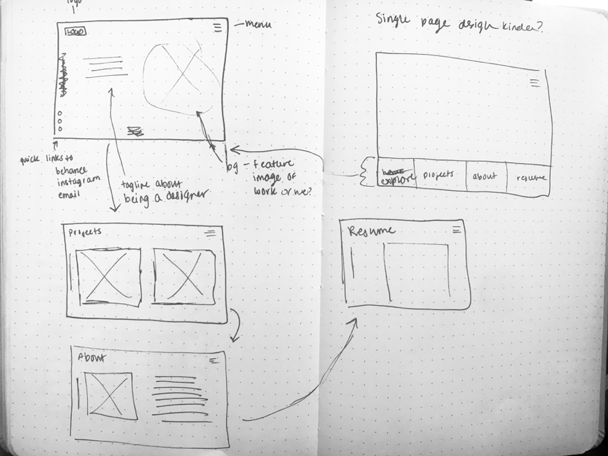 logo
LOGO
menu
quick links to
behance
instagram
email
tagline about
being a designer
bg - feature
image of
work or me?
Projects
About
Single page design kinda?
explore
projects
about
resume
Resume